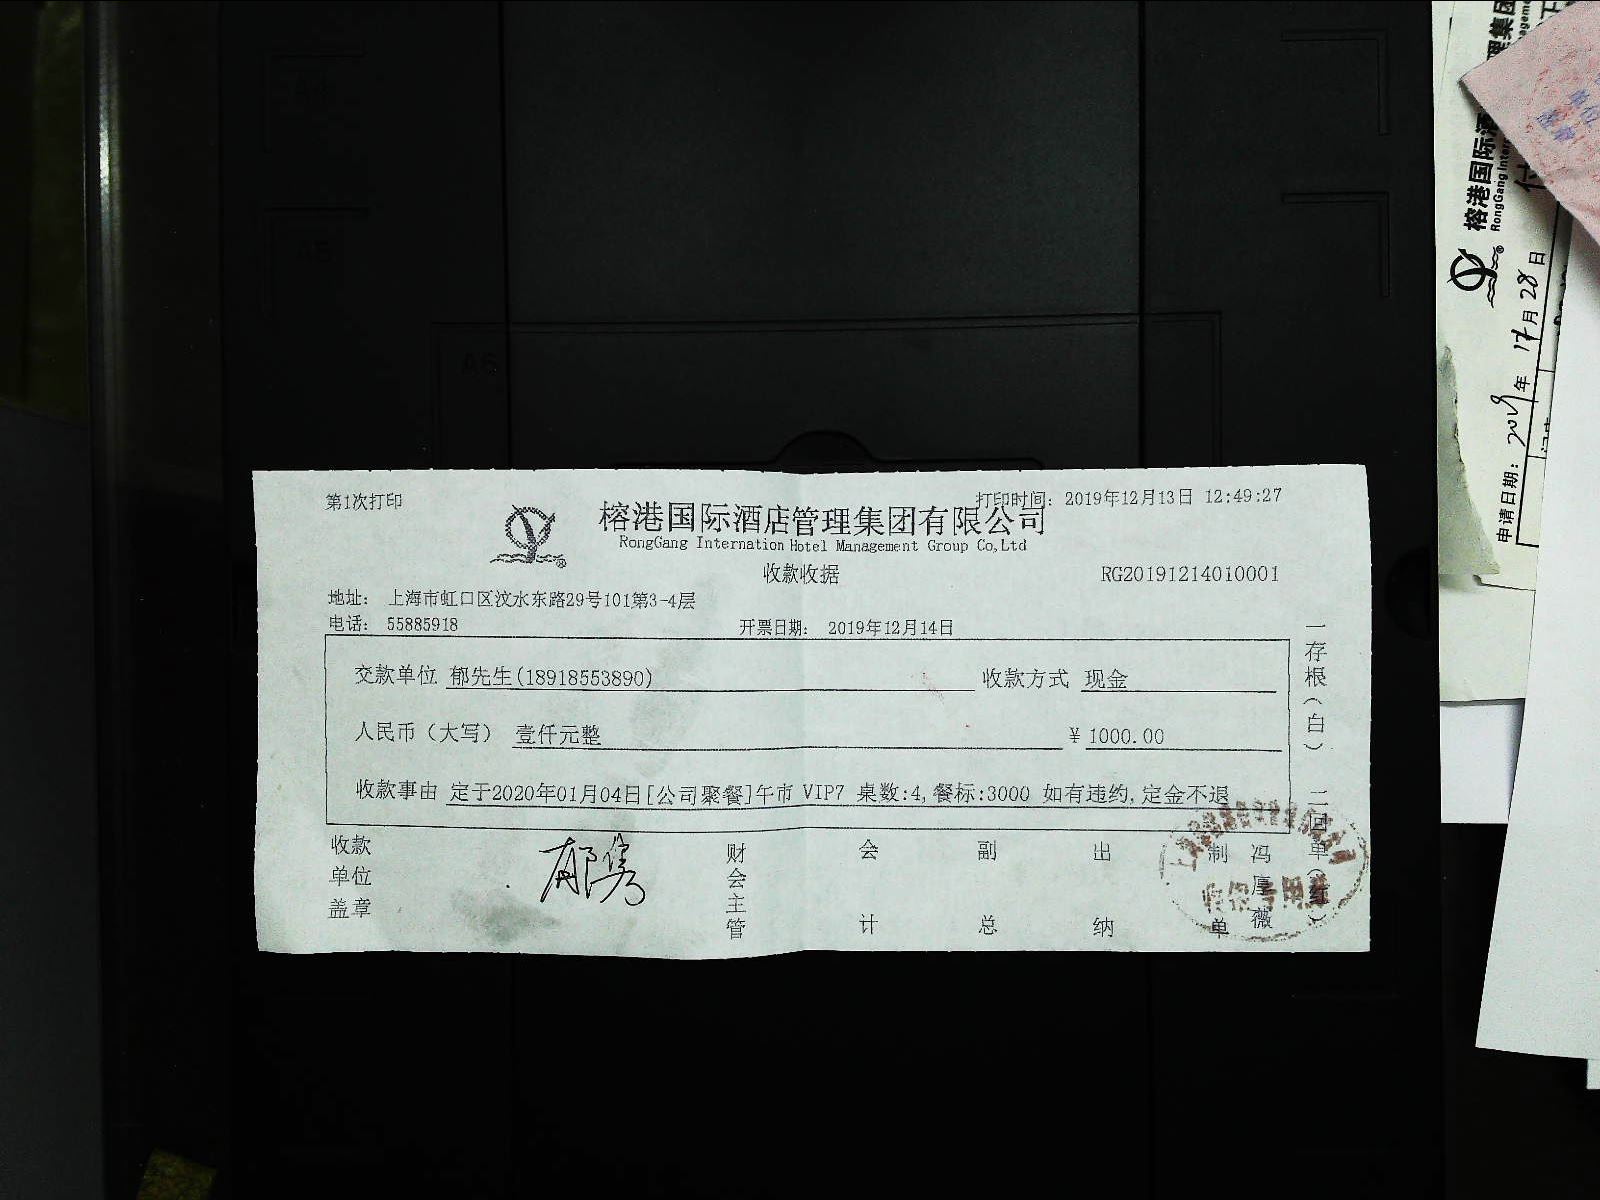 第1次打印
打印时间: 2019年12月13日 12:49:27
榕港国际酒店管理集团有限公司
RongGang Internation Hotel Management Group Co,Ltd
收款收据
RG20191214010001
地址: 上海市虹口区汶水东路29号101第3-4层
电话: 55885918
开票日期: 2019年12月14日
交款单位 郁先生(18918553890) 收款方式 现金
人民币（大写） 壹仟元整 ¥ 1000.00
收款事由 定于2020年01月04日[公司聚餐]午市 VIP7 桌数:4,餐标:3000 如有违约,定金不退
收款单位盖章
郁隽
财会主管
会计
副总
出纳
制单
冯厚薇
一存根(白)
二回单(红)
榕港国际酒
RongGang Inter
申请日期: 2019年 12月 28日
付
A6
A5
单位